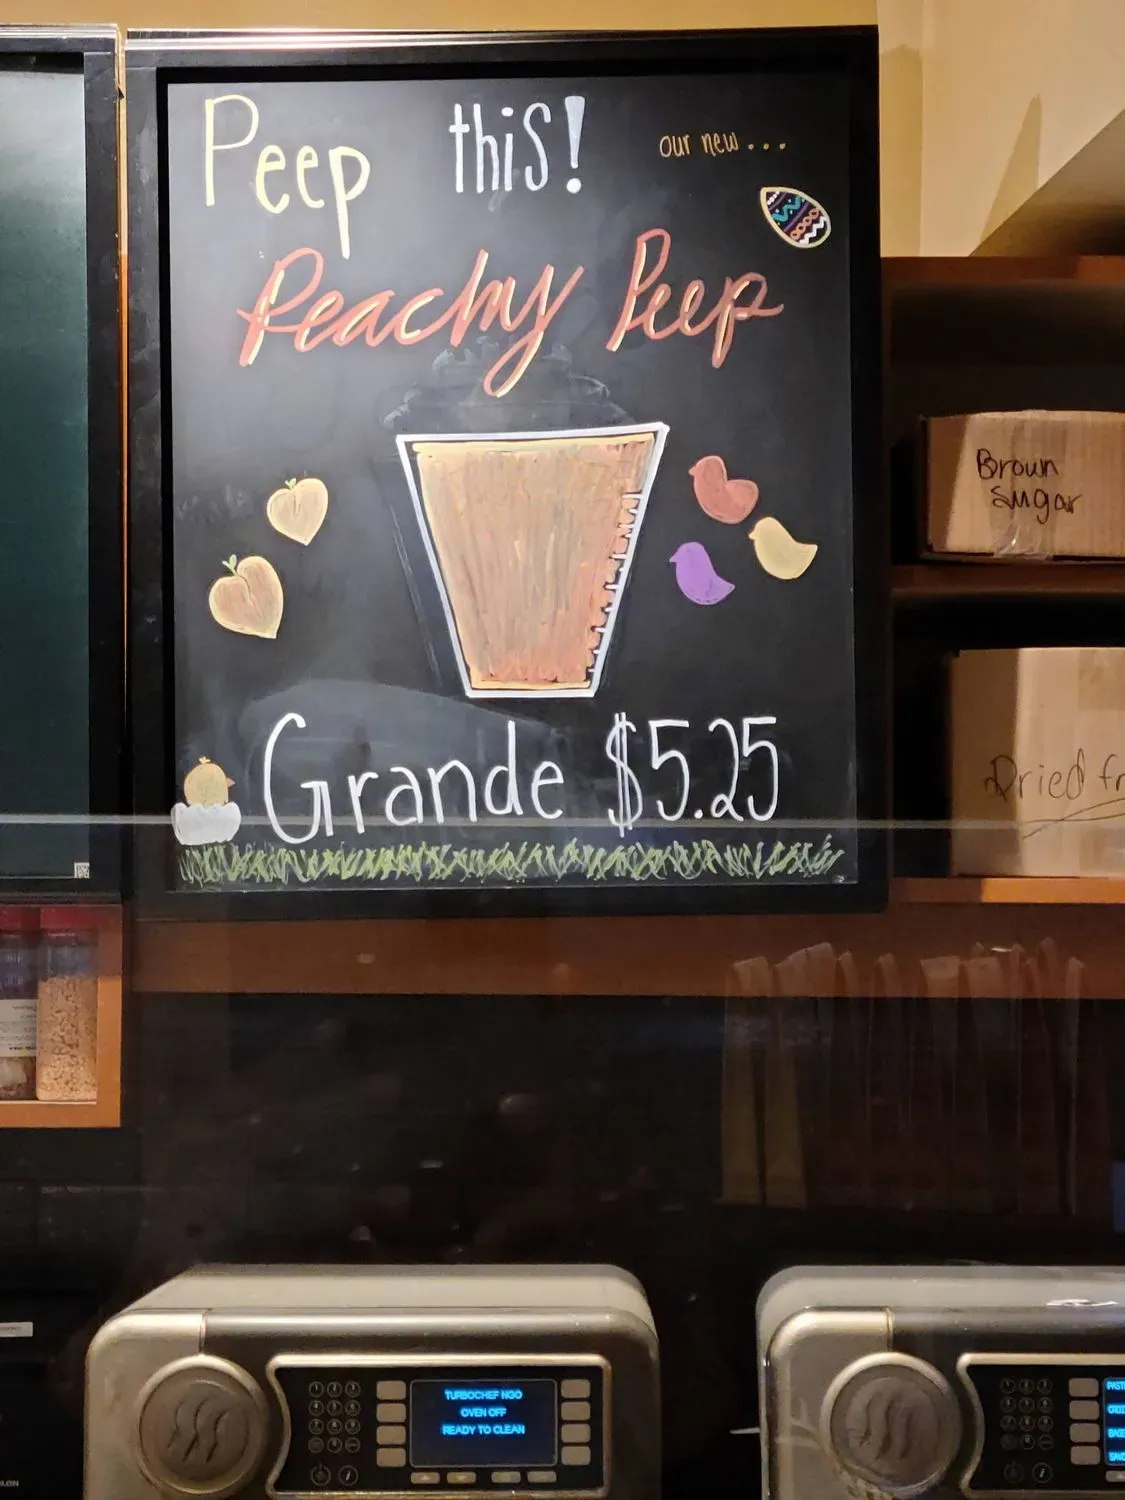 Peep this! our new...
Peachy Peep
Grande $5.25
Brown
Sugar
Dried
TURBOCHEF NGO
OVEN OFF
READY TO CLEAN
1 2 3